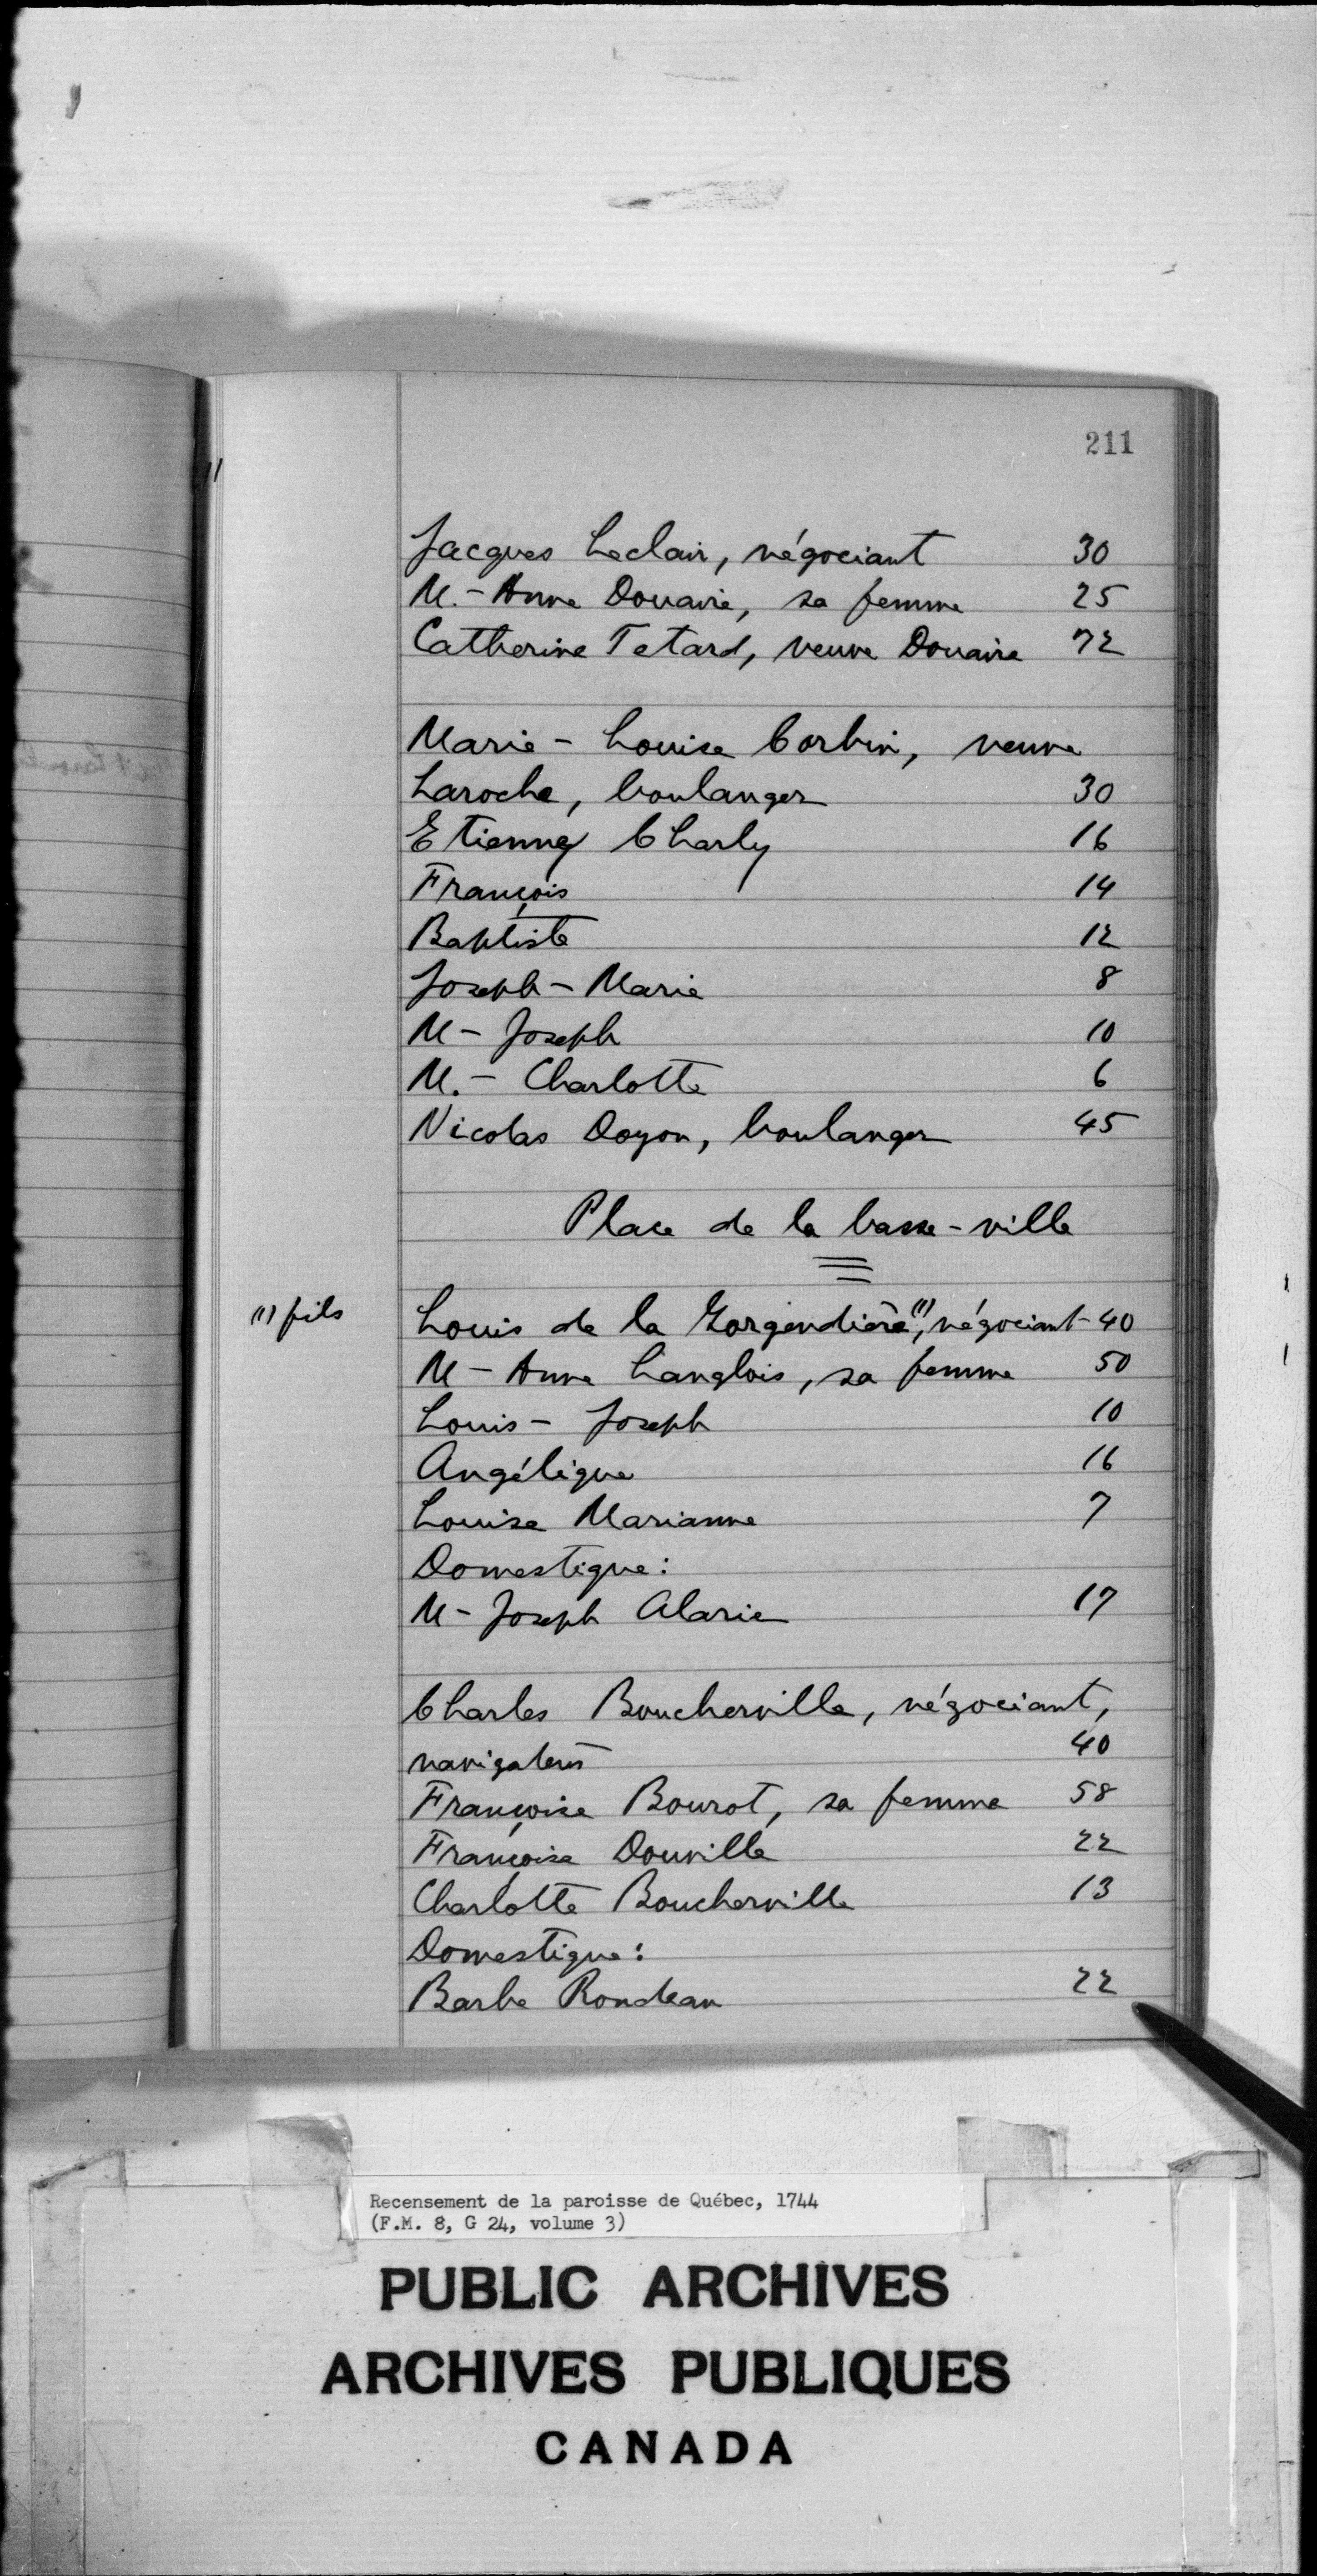 211
Jacques Leclair, négociant 30
M.-Anne Douaire, sa femme 25
Catherine Tetard, veuve Douaire 72
Marie-Louise Corbin, veuve
Laroche, boulanger 30
Etienne Charly 16
François 14
Baptiste 12
Joseph-Marie 8
M-Joseph 10
M.-Charlotte 6
Nicolas Doyon, boulanger 45
Place de la basse-ville
(1) fils Louis de la Gorgendière (1), négociant 40
M-Anne Langlois, sa femme 50
Louis-Joseph 10
Angélique 16
Louise Marianne 7
Domestique:
M-Joseph Alarie 17
Charles Boucherville, négociant,
navigateur 40
Françoise Bourot, sa femme 58
Françoise Douville 22
Charlotte Boucherville 13
Domestique:
Barbe Rondeau 22
Recensement de la paroisse de Québec, 1744
(F.M. 8, G 24, volume 3)
PUBLIC ARCHIVES
ARCHIVES PUBLIQUES
CANADA